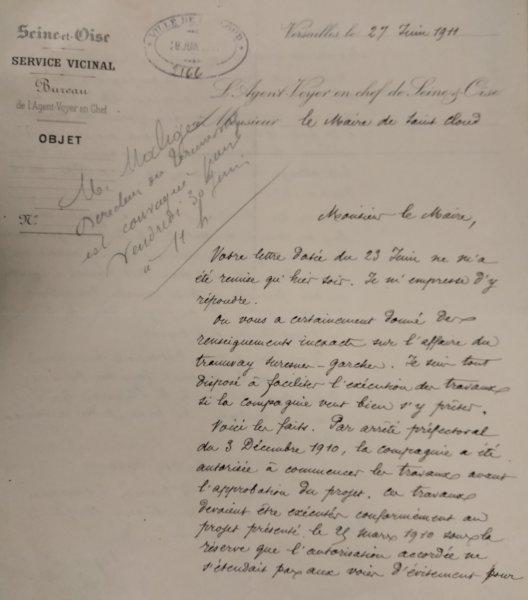 Seine-et-Oise
SERVICE VICINAL
Bureau
de l'Agent-Voyer en Chef
OBJET
N°
VILLE DE ST CLOUD
28 JUIN
5166
Versailles le 27 Juin 1911
L'Agent-Voyer en chef de Seine & Oise
à Monsieur le Maire de Saint Cloud
M.
Directeur du tramway
est convoqué pour
Vendredi 30 Juin
à 11 h
Monsieur le Maire,
Votre lettre datée du 23 Juin ne m'a
été remise qu'hier soir. Je m'empresse d'y
répondre.
On vous a certainement donné des
renseignements inexacts sur l'affaire du
tramway Suresnes-Garches. Je suis tout
disposé à faciliter l'exécution des travaux
si la compagnie veut bien s'y prêter.
Voici les faits. Par arrêté préfectoral
du 3 Décembre 1910, la compagnie a été
autorisée à commencer les travaux avant
l'approbation du projet. Ces travaux
devaient être exécutés conformément au
projet présenté le 25 mars 1910 sous la
réserve que l'autorisation accordée ne
s'étendait pas aux voies d'évitement pour